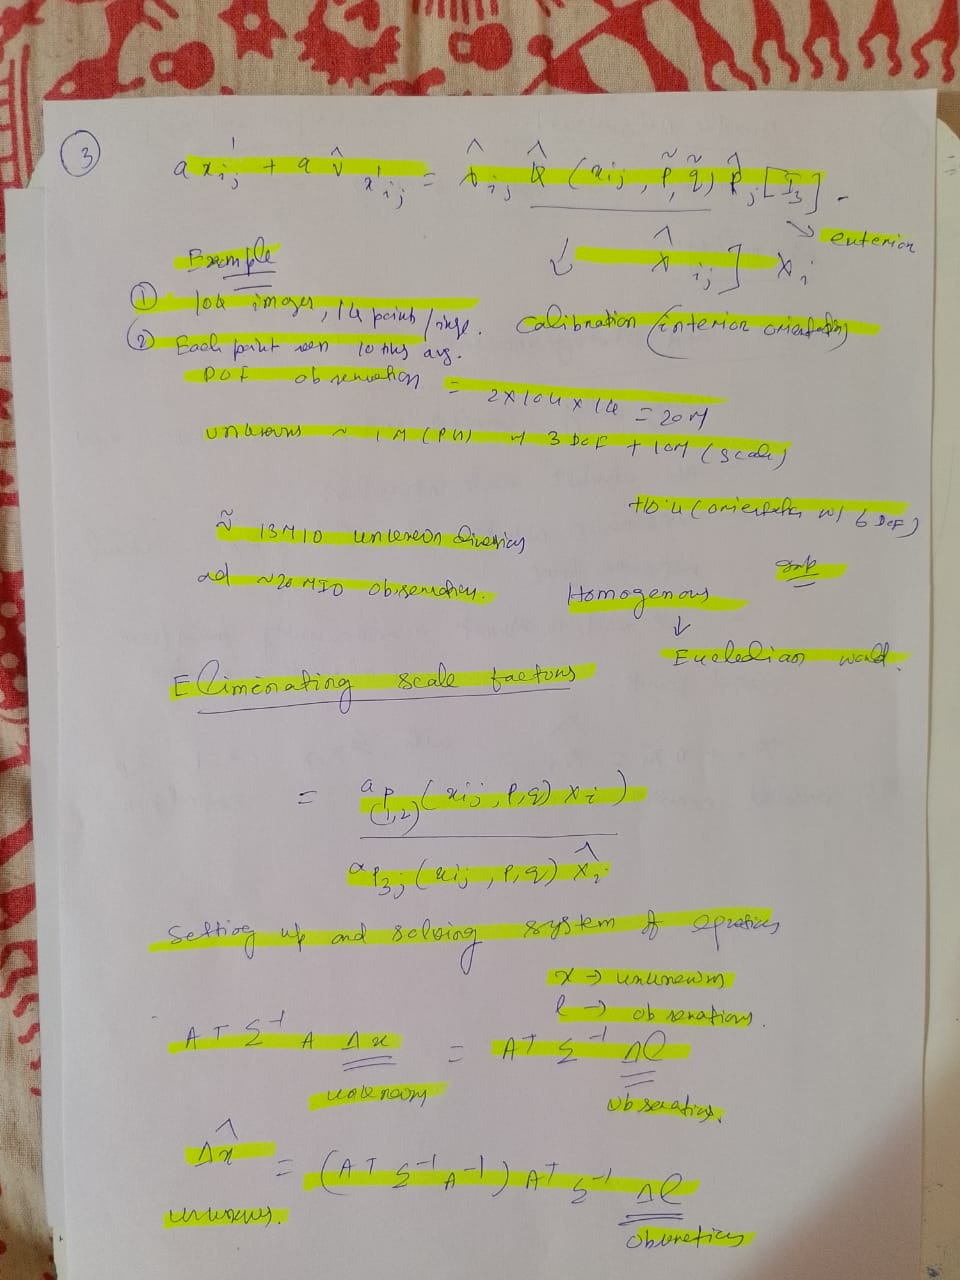 3
a x'ij + a v̂ x'ij = λ̂ij k̂ (xij, p̃, q̃) p̂j [I3] .
↘ exterior
↙ x̂ij ] Xi
Example
① 10k images, 1k points/image.
Calibration (interior orientation)
② Each point seen 10 times avg.
DOF observation = 2×10k×1k = 20M
unknowns ~ 1M (pts) w 3 DOF + 10M (scale)
+10k (orientation w/ 6 DOF)
≈ 13M10 unknown
ad ~20 MIO observations.
Homogenous
↓
Eucledian world.
Eliminating scale factors
= a p(1,2) (xij, p, q) xi )
a p3j (xij, p, q) x̂i
Setting up and solving system of equations
x → unknown
l → observations.
A T Σ-1 A Δx = AT Σ-1 Δl
unknown
observations.
Δx̂ = (AT Σ-1 A-1) AT Σ-1 Δl
unknowns.
observations